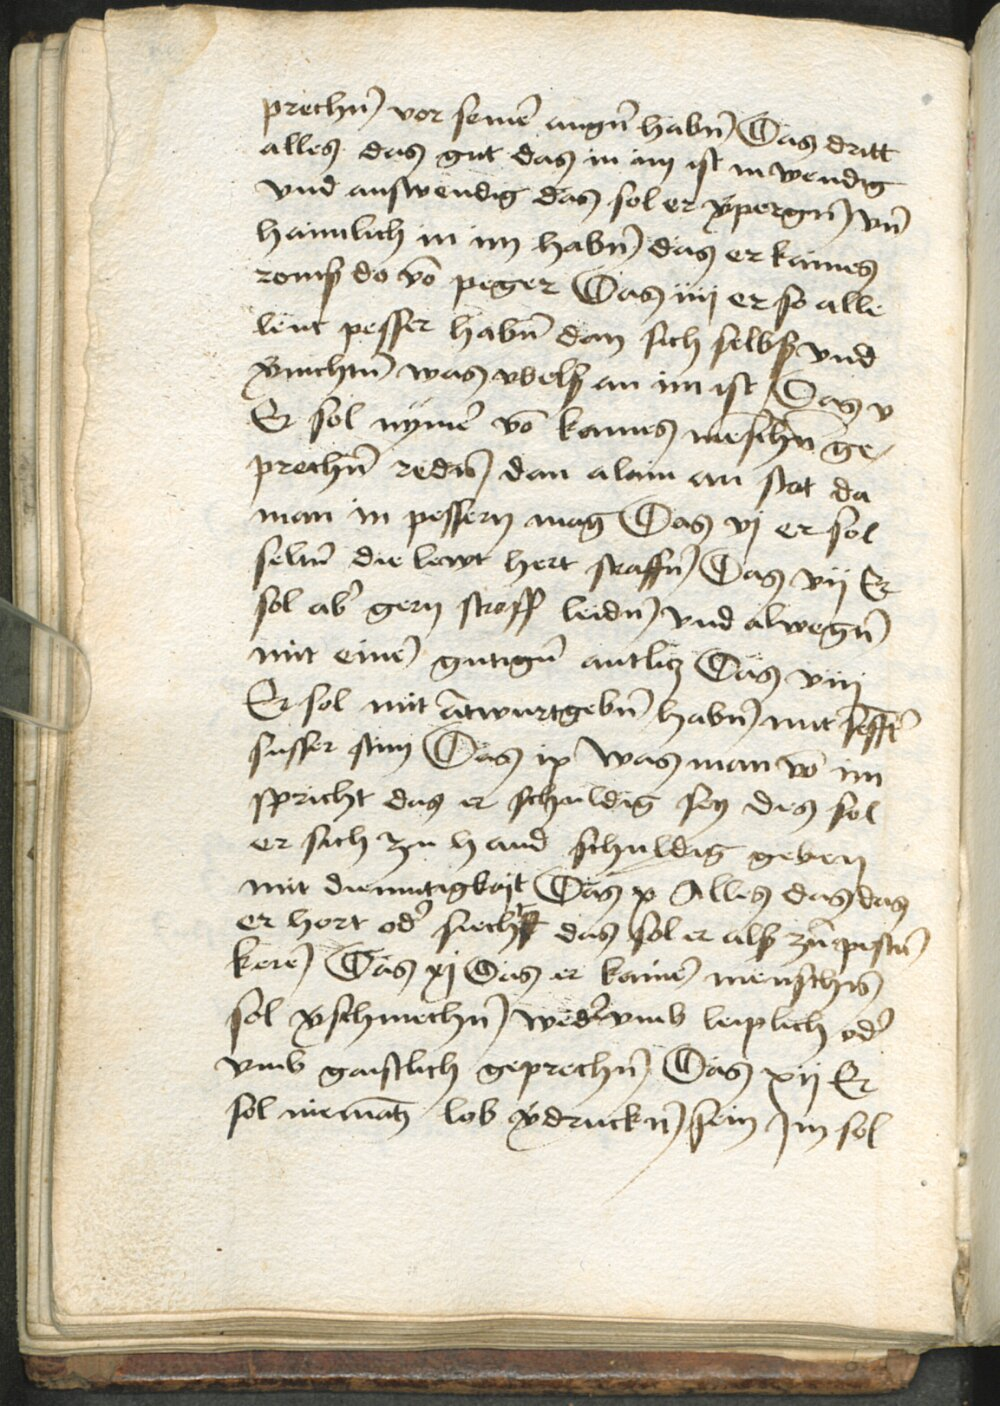 prechn̄ vor seinē augn̄ habn̄ Das dritt
alles das gut das in im ist inwendig
vnd auswendig das sol er v̄pergn̄ vn̄
haimlich in im habn̄ das er kaines
roms do vō peger Das iiij er so alle
leut pesser habn̄ dan sich selbs vnd
v̄nichtn̄ was vbels an im ist Das v
Er sol nymē vō kaines mēschn̄ ge
prechn̄ redn̄ dan alain an stat da
man in pessern mag Das vj er sol
seltn̄ die lewt hert straffn̄ Das vij Er
sol ab̄ gern stroff leidn̄ vnd alwegn̄
mit einē gutign̄ antlitz Das viij
Er sol mit ātwurtgebn̄ habn̄ mit
susser stim Das ix was man vō im
spricht das er schuldig sey des sol
er sich zu hand schuldig geben
mit diemutigkajt Das x Alles das das
er hort od̄ siecht das sol er als zū pestn̄
kerē Das xj Das er kainē menschn̄
sol v̄schmechn̄ wed̄ vmb leiplich od̄
vmb gaistlich geprechn̄ Das xij Er
sol niemātz lob v̄druckn̄ sein Im sol